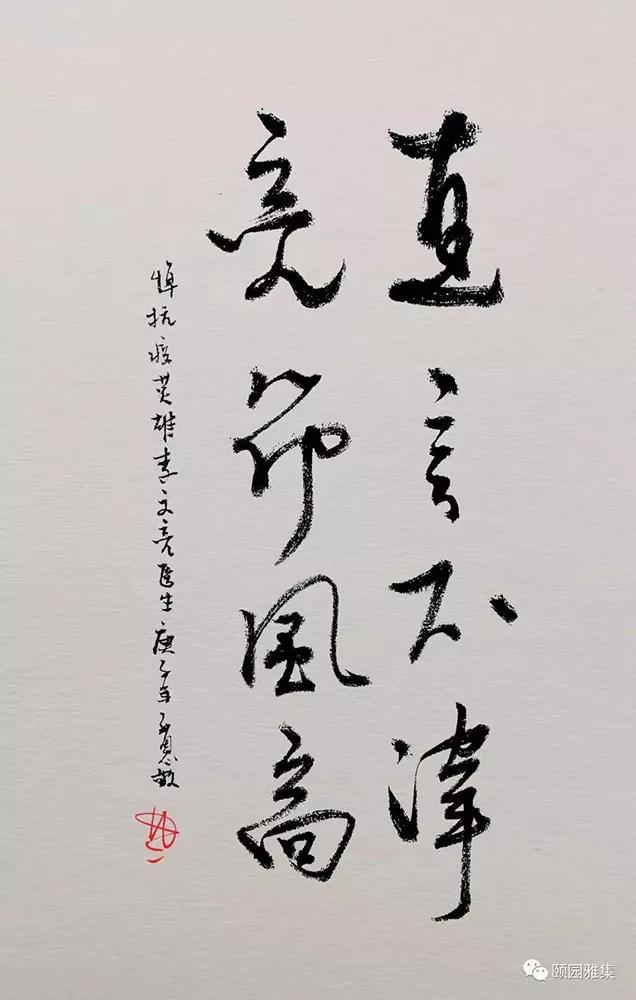 直言不諱
亮節風高
悼抗疫英雄李文亮医生庚子年
颐园雅集